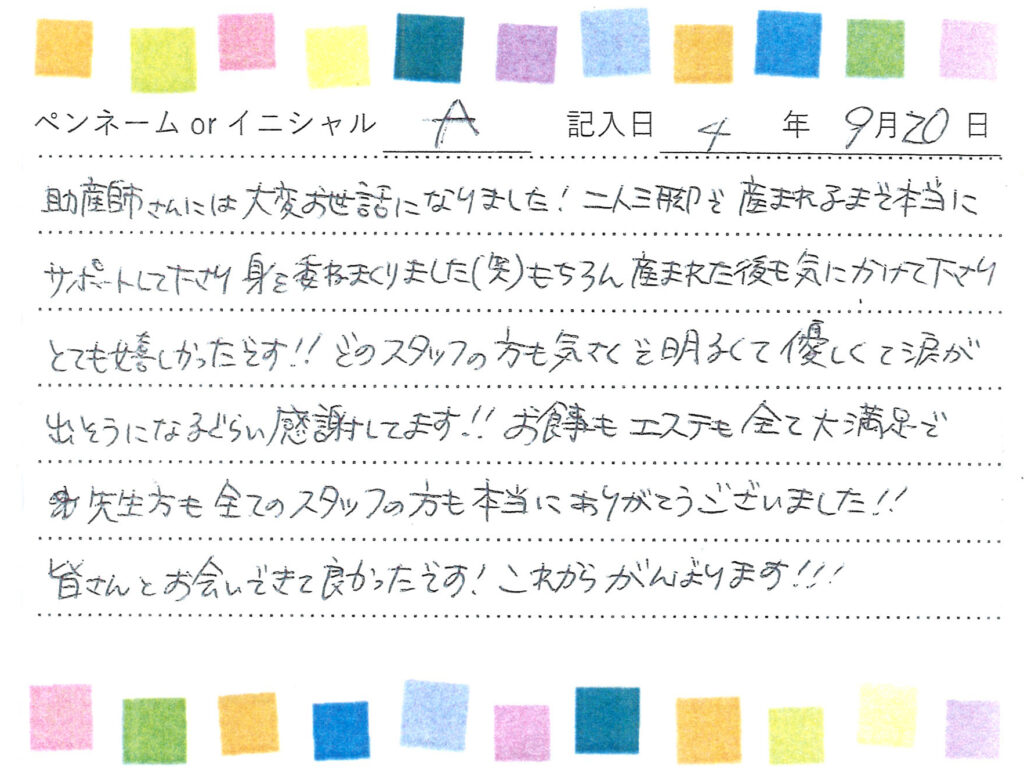 ペンネーム or イニシャル A 記入日 4 年 9月20日
助産師さんには大変お世話になりました！二人三脚で産まれるまで本当に
サポートして下さり身を委ねまくりました(笑)もちろん産まれた後も気にかけて下さり
とても嬉しかったです!!どのスタッフの方も気さくで明るくて優しくて涙が
出そうになるぐらい感謝してます!!お食事もエステも全て大満足で
先生方も全てのスタッフの方も本当にありがとうございました!!
皆さんとお会いできて良かったです！これからがんばります!!!